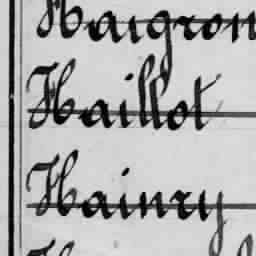 Haigron
Haillot
Hainry